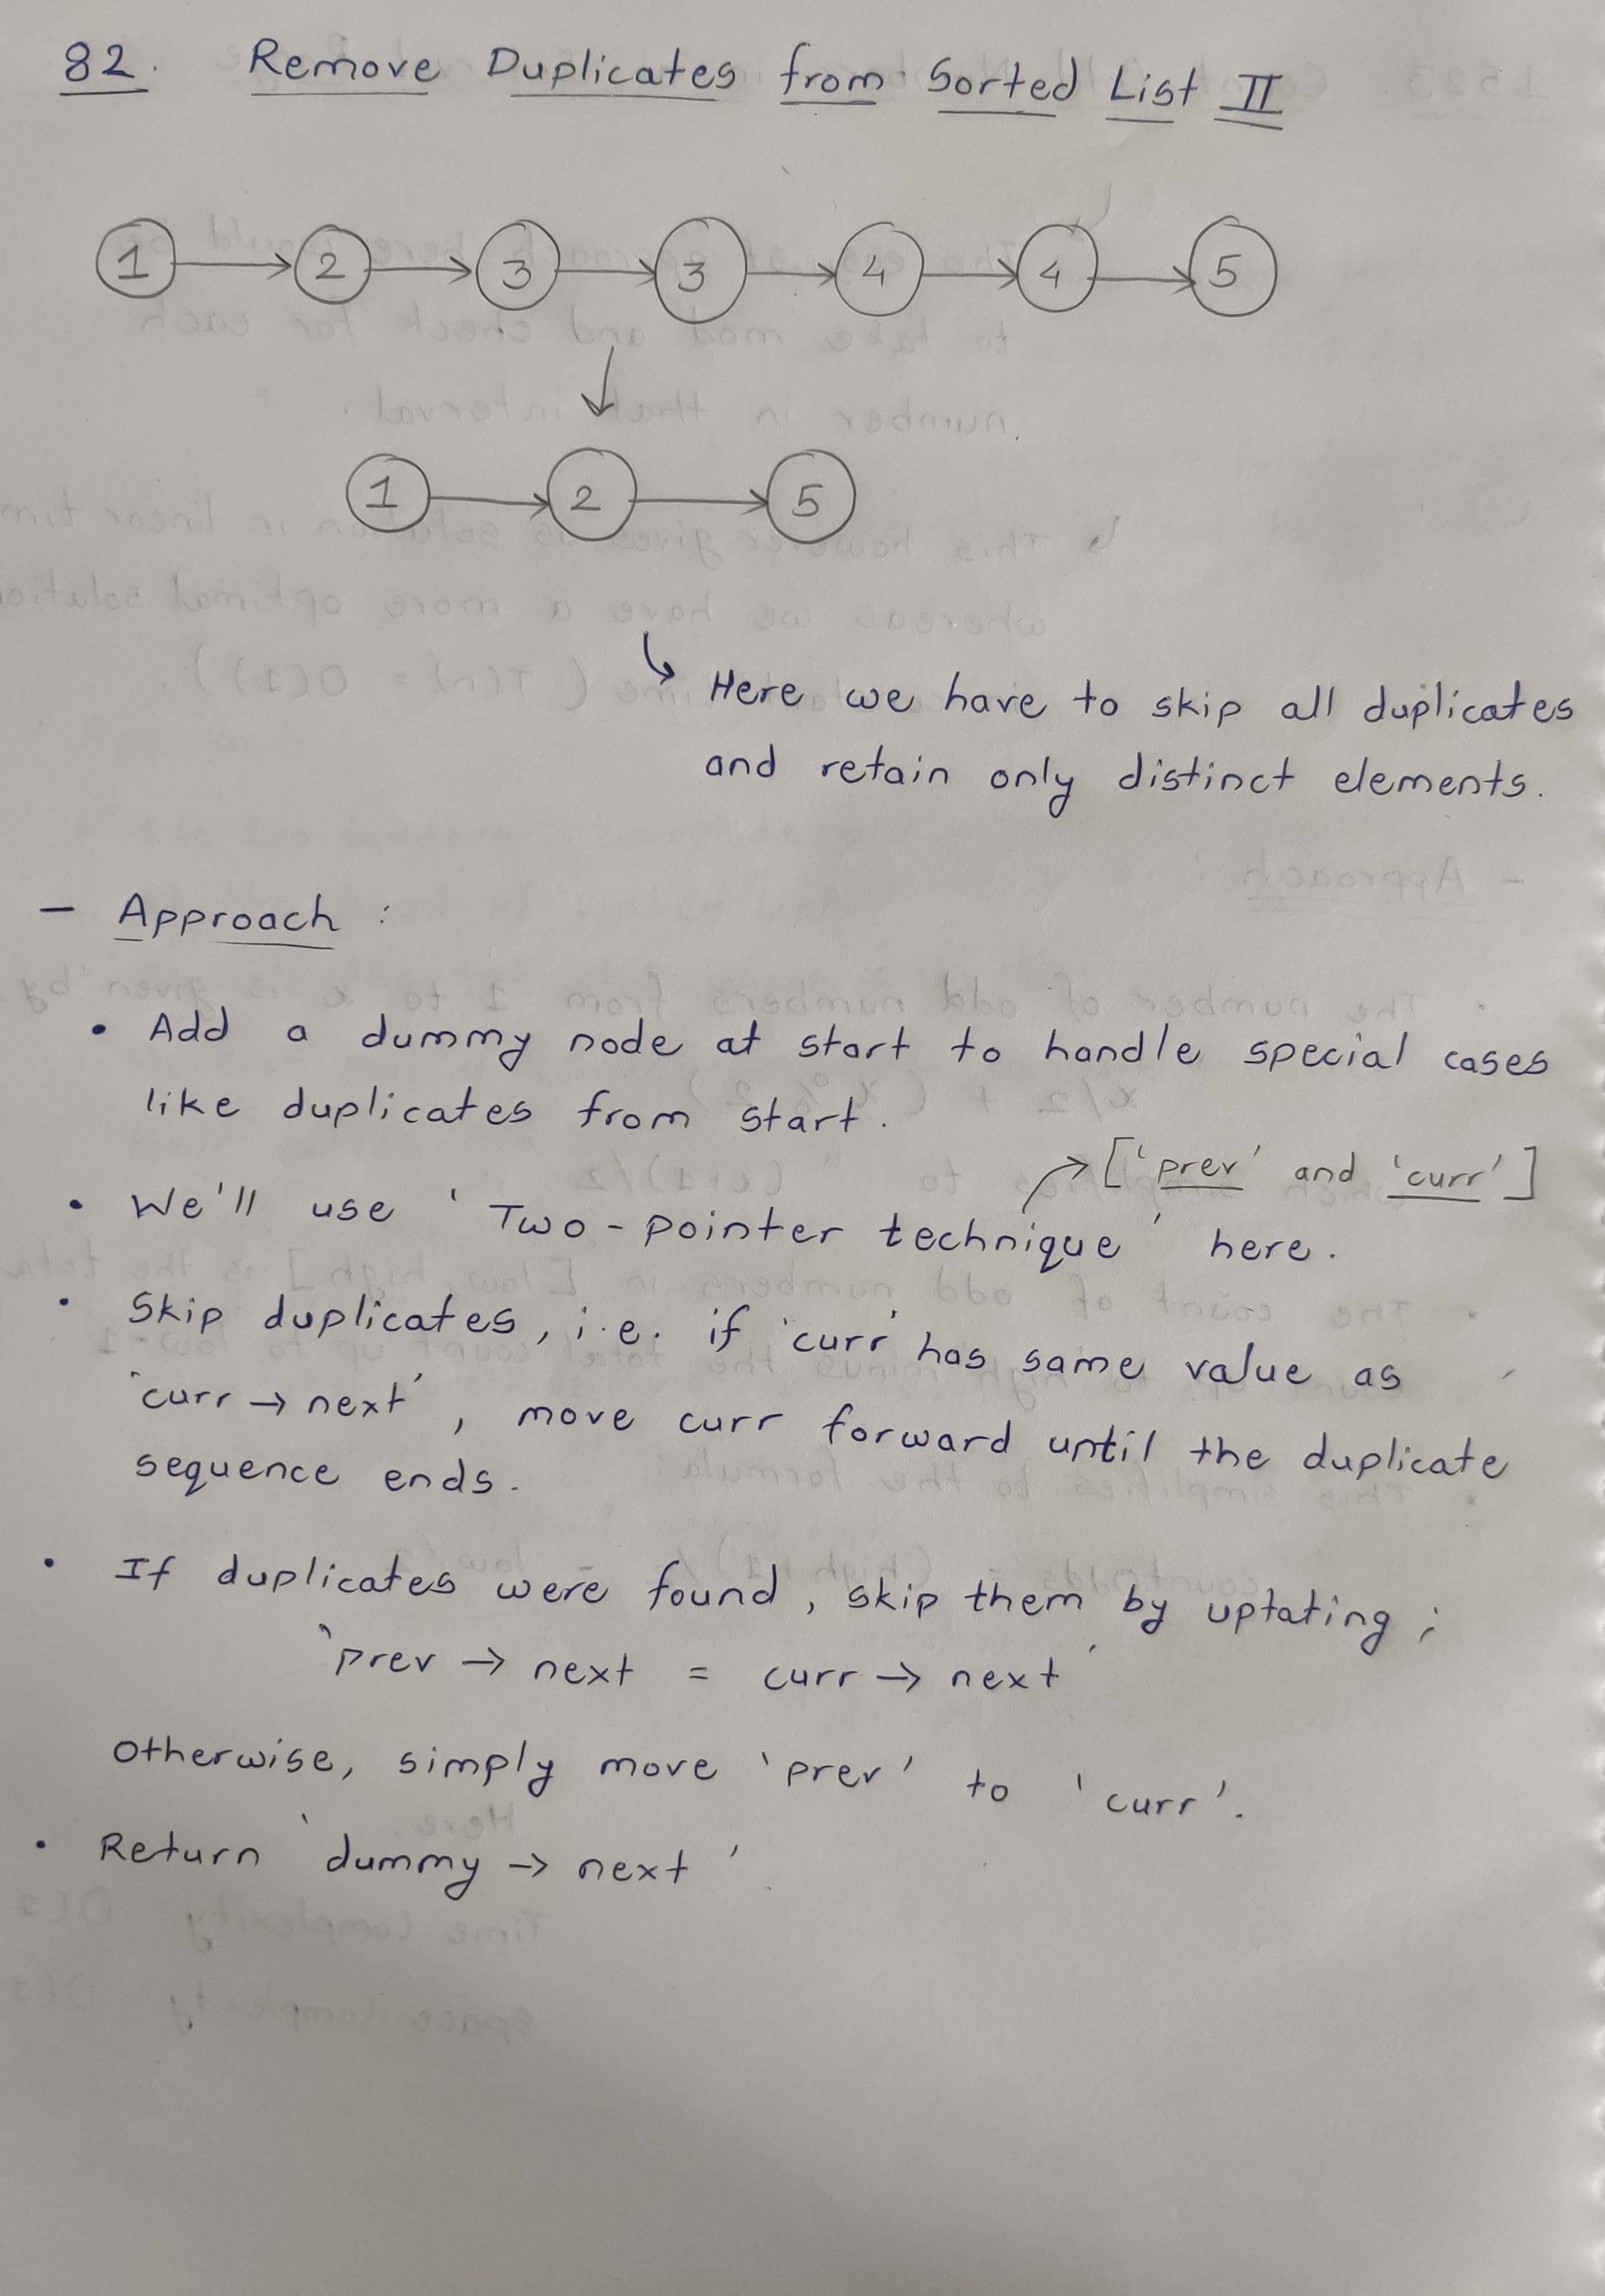 82. Remove Duplicates from Sorted List II
1 → 2 → 3 → 3 → 4 → 4 → 5
↓
1 → 2 → 5
↳ Here we have to skip all duplicates
and retain only distinct elements.
- Approach :
• Add a dummy node at start to handle special cases
like duplicates from start.
→ ['prev' and 'curr']
• We'll use 'Two-pointer technique' here.
• Skip duplicates, i.e. if 'curr' has same value as
'curr → next', move curr forward until the duplicate
sequence ends.
• If duplicates were found, skip them by uptating ;
'prev → next = curr → next'
otherwise, simply move 'prev' to 'curr'.
• Return 'dummy → next'